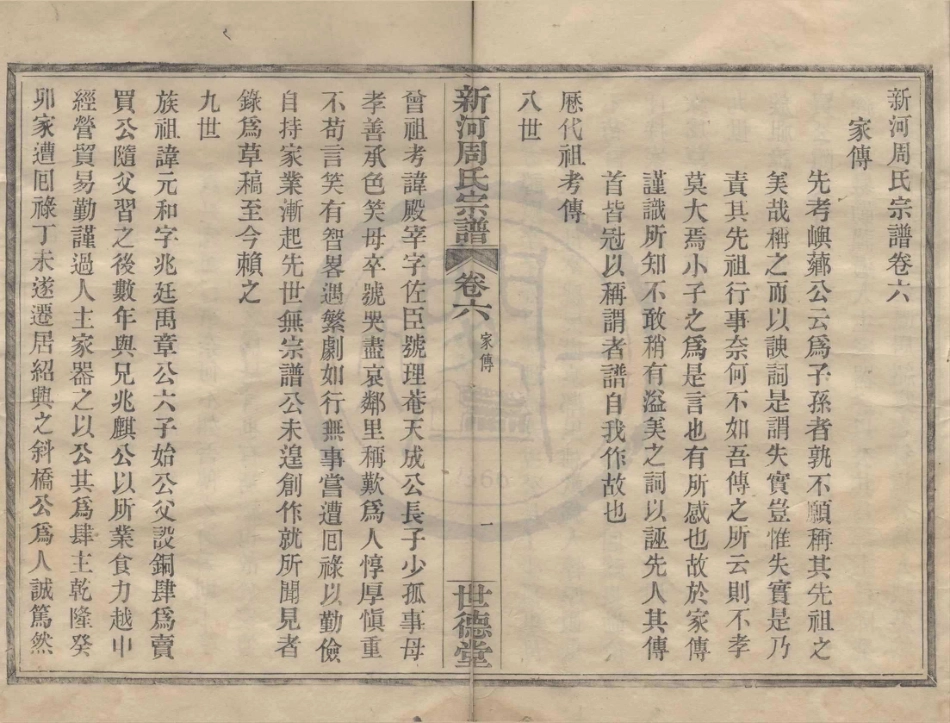 新河周氏宗譜卷六
家傳
先考嶼薌公云為子孫者孰不願稱其先祖之
美哉稱之而以諛詞是謂失實豈惟失實是乃
責其先祖行事奈何不如吾傳之所云則不孝
莫大焉小子之為是言也有所感也故於家傳
謹識所知不敢稍有溢美之詞以誣先人其傳
首皆冠以稱謂者譜自我作故也
厯代祖考傳
八世
新河周氏宗譜 卷六 家傳 一 世德堂
曾祖考諱殿宰字佐臣號理菴天成公長子少孤事母
孝善承色笑母卒號哭盡哀鄰里稱歎為人惇厚慎重
不苟言笑有智畧遇繁劇如行無事嘗遭囘祿以勤儉
自持家業漸起先世無宗譜公未遑創作就所聞見者
錄為草稿至今賴之
九世
族祖諱元和字兆廷禹章公六子始公父設銅肆為賣
買公隨父習之後數年與兄兆麒公以所業食力越中
經營貿易勤謹過人主家器之以公其為肆主乾隆癸
卯家遭囘祿丁未遂遷居紹興之斜橋公為人誠篤然